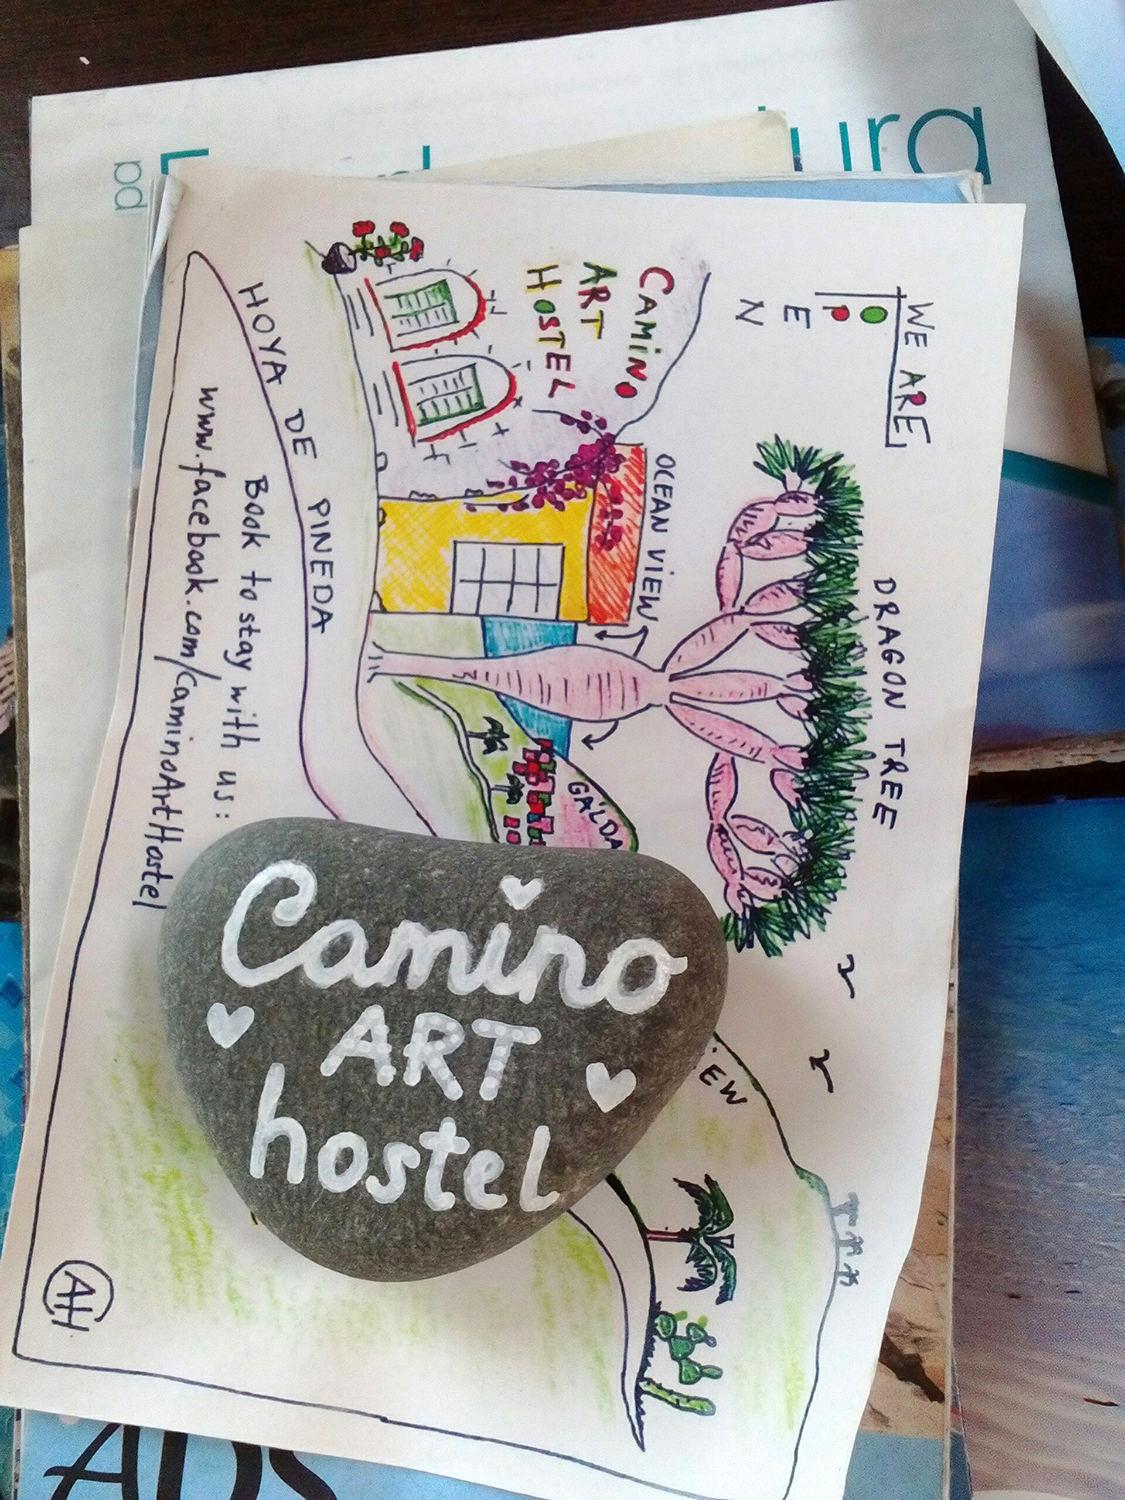 Camino
ART
hostel
WE ARE
OPEN
DRAGON TREE
CAMINO
ART
HOSTEL
OCEAN VIEW
GALDA
HOYA DE PINEDA
Book to stay with us:
www.facebook.com/CaminoArtHostel
AH